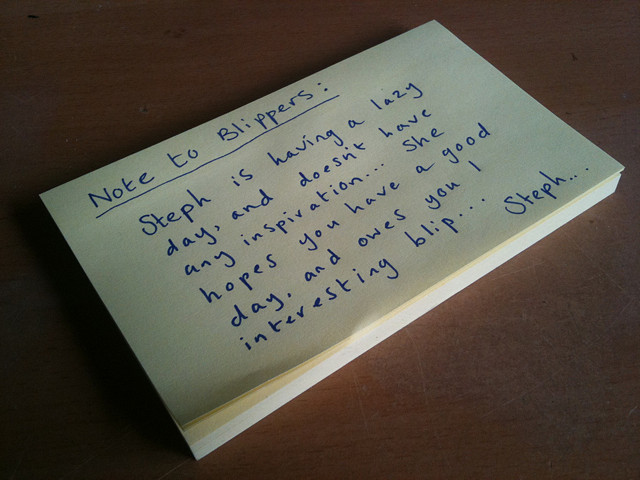 Note to Blippers:
Steph is having a lazy
day, and doesn't have
any inspiration... She
hopes you have a good
day, and owes you 1
interesting blip...
Steph...